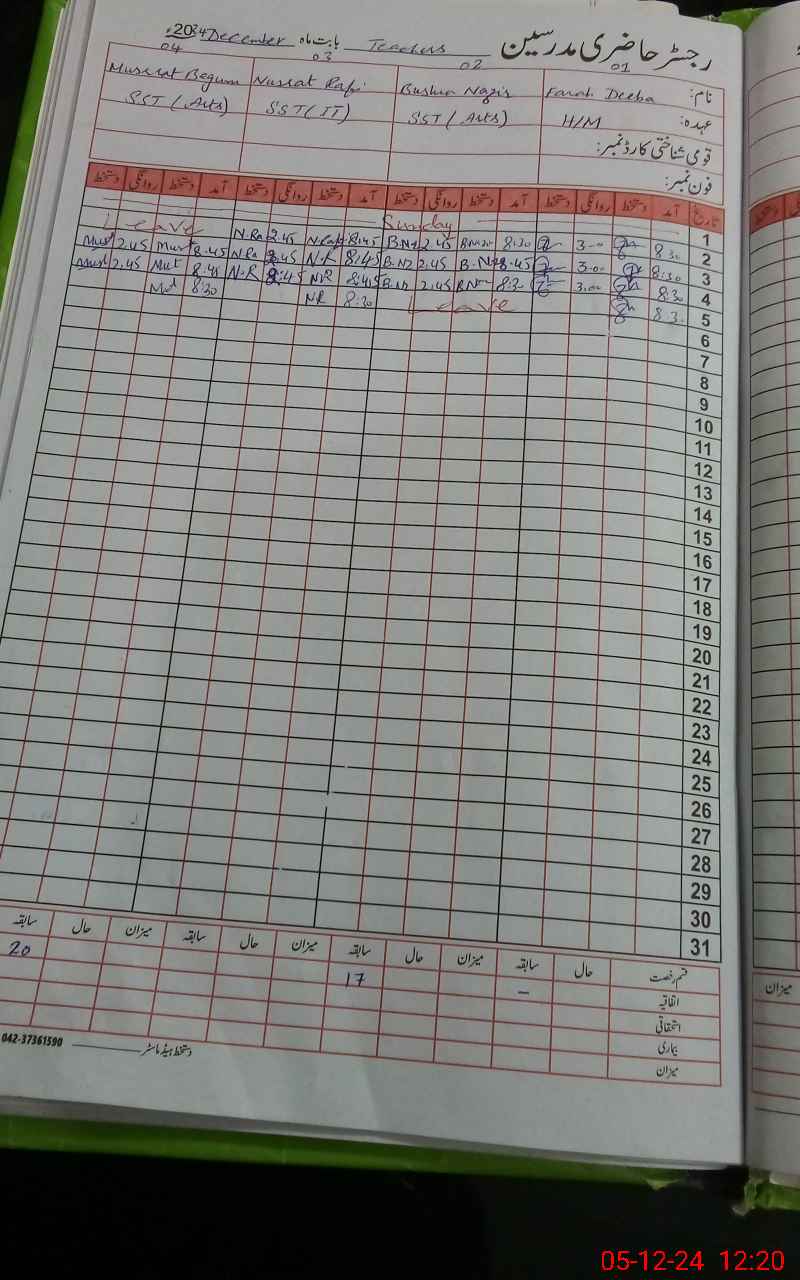 رجسٹر حاضری مدرسین Teachers بابت ماہ December 2024ء
01 02 03 04
نام: Farah Deeba Bushra Nazir Nusrat Rafi Mussrat Begum
عہدہ: H/M SST (Arts) SST (IT) SST (Arts)
قومی شناختی کارڈ نمبر:
فون نمبر:
تاریخ آمد دستخط روانگی دستخط آمد دستخط روانگی دستخط آمد دستخط روانگی دستخط آمد دستخط روانگی دستخط
1 Sunday
2 8:30 3-00 8:30 2.45 B.Nz 8:45 2.45 N.Ra Leave
3 8:30 3.00 8.45 B.Nz 2.45 B.Nz 8:45 N.R 2.45 N.Ra 8.45 Must 2.45 Must
4 8:30 3.00 8:30 2.45 B.Nz 8:45 N.R 2:45 N.R 8:45 Mut 2.45 Must
5 8:30 Leave 8:30 NR 8:30 Mut
6
7
8
9
10
11
12
13
14
15
16
17
18
19
20
21
22
23
24
25
26
27
28
29
30
31
قسم رخصت حال سابقہ میزان حال سابقہ میزان حال سابقہ میزان حال سابقہ
اتفاقیہ - 17 20
استحقاقی
بیماری
میزان
دستخط ہیڈ ماسٹر 042-37361590
میزان
05-12-24 12:20